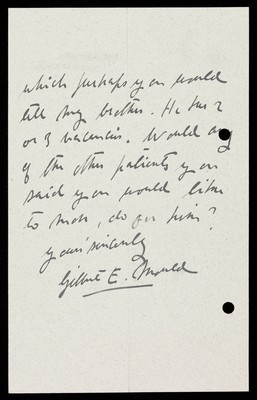 which perhaps you would
tell my brother. He has 2
or 3 vacancies. Would any
of the other patients you
said you would like
to move, do for him?
Yours sincerely
Gilbert E. Mould